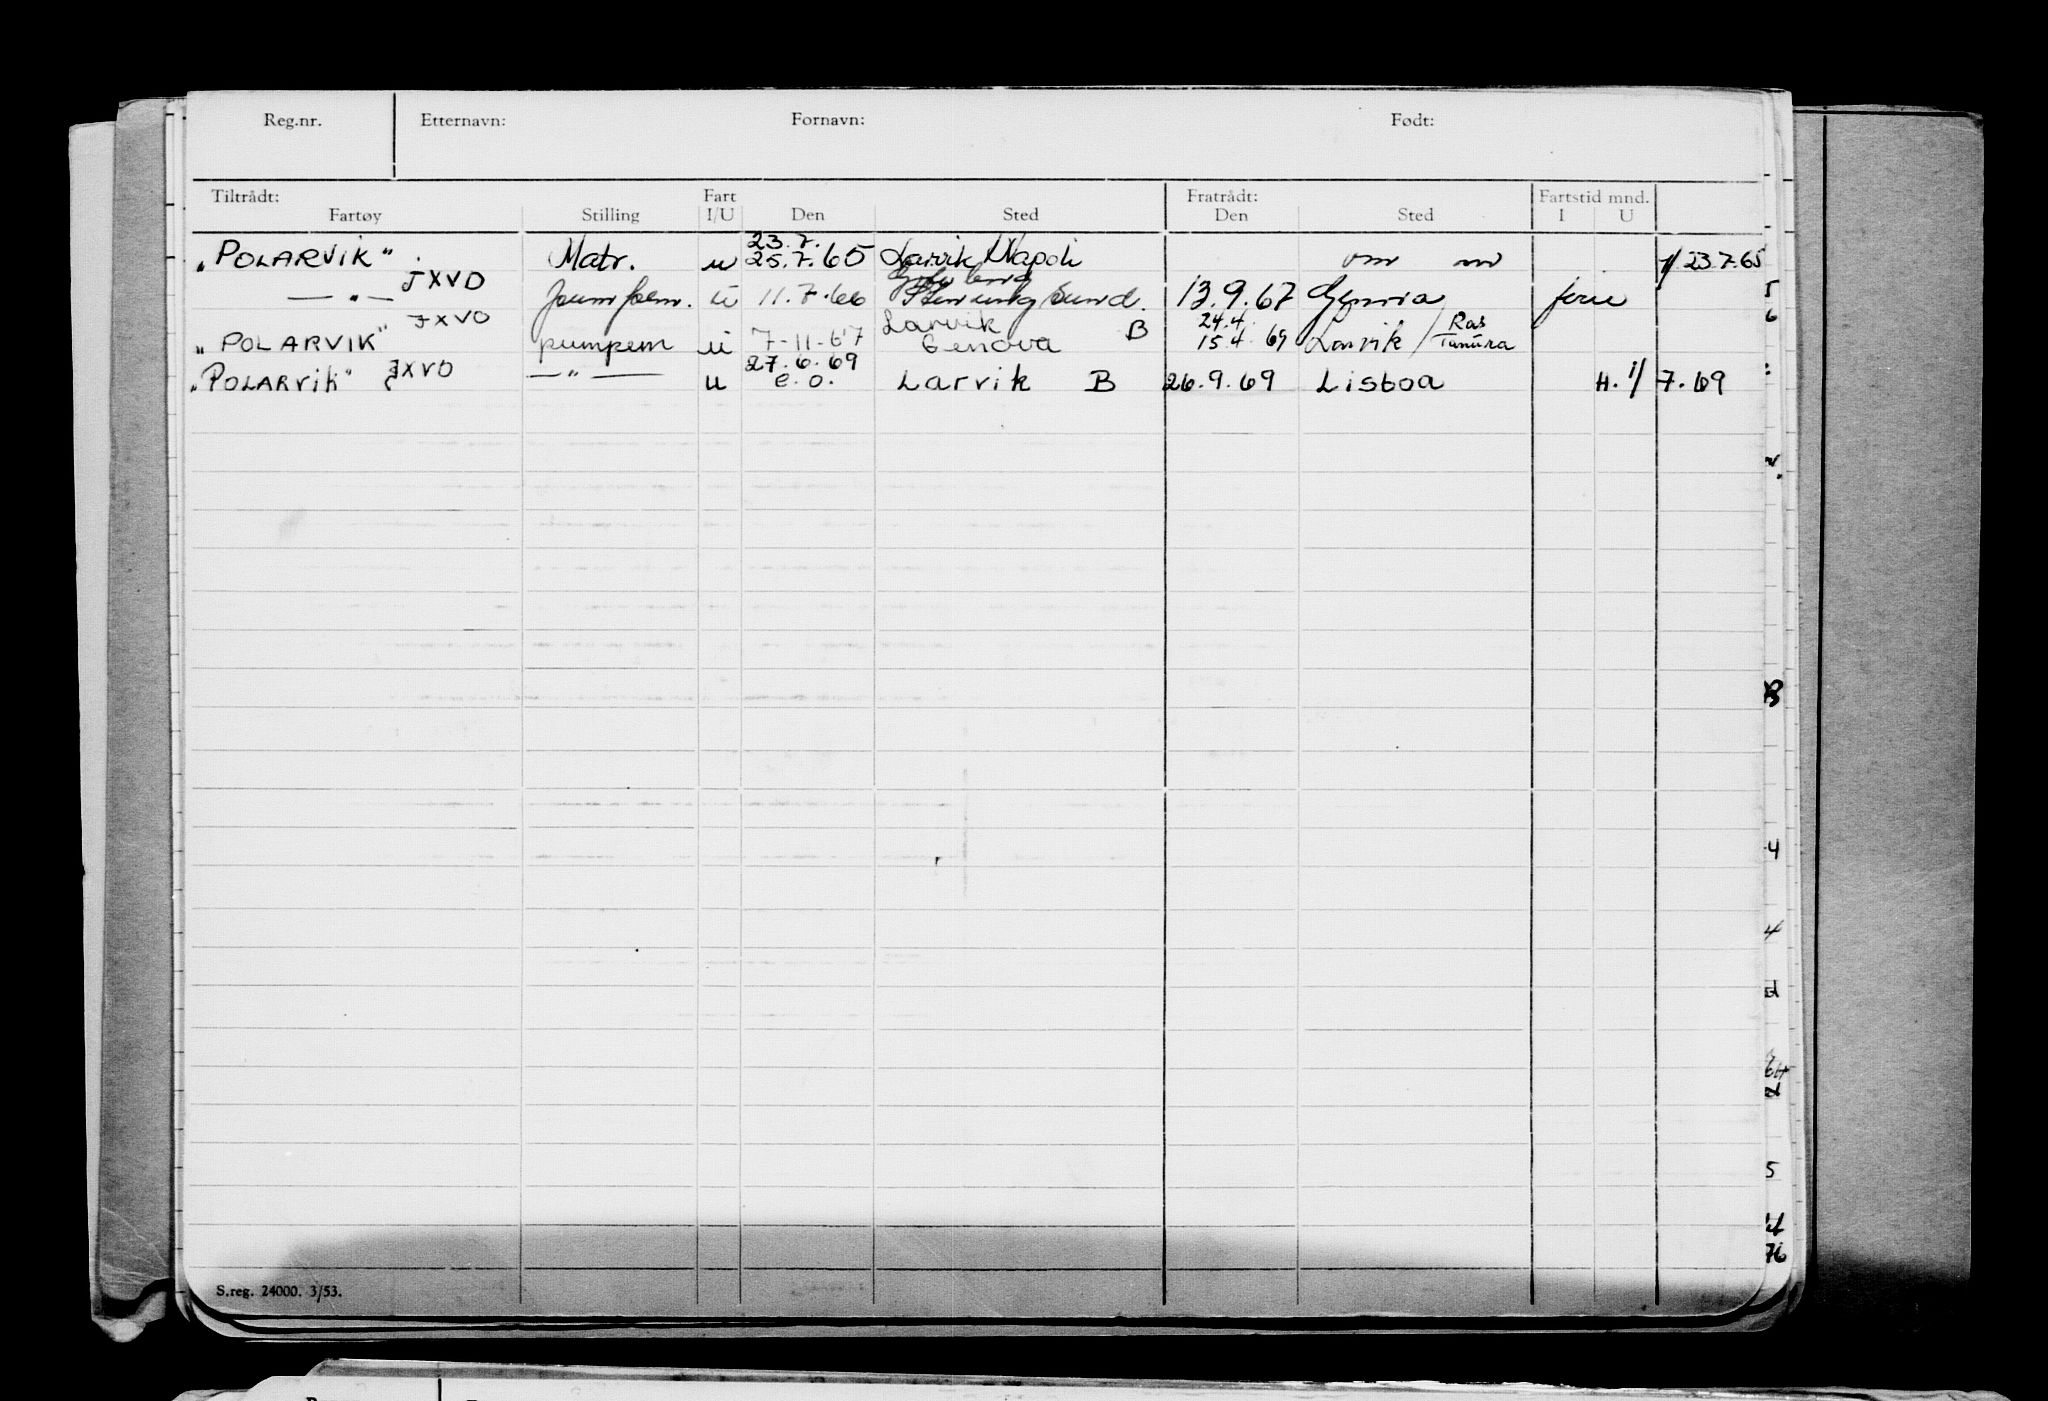 Reg.nr. Etternavn: Fornavn: Født:
Tiltrådt: Fart Fratrådt: Fartstid mnd.
Fartøy Stilling I/U Den Sted Den Sted I U
23.7.
"POLARVIK" Matr. u 25.7.65 Larvik Napoli om m 1/ 23.7.65
JXVO Gøteborg
— " — u 11.7.66 Stenungsund. 13.9.67 Genova ferie
JXVO Larvik 24.4. Ras
"POLARVIK" pumpem u 7-11-67 Genova B 15.4.69 Larvik / Tanura
27.6.69
"POLARVIK" JXVO — " — u e.o. Larvik B 26.9.69 Lisboa H. 1/ 7.69
S.reg. 24000. 3/53.